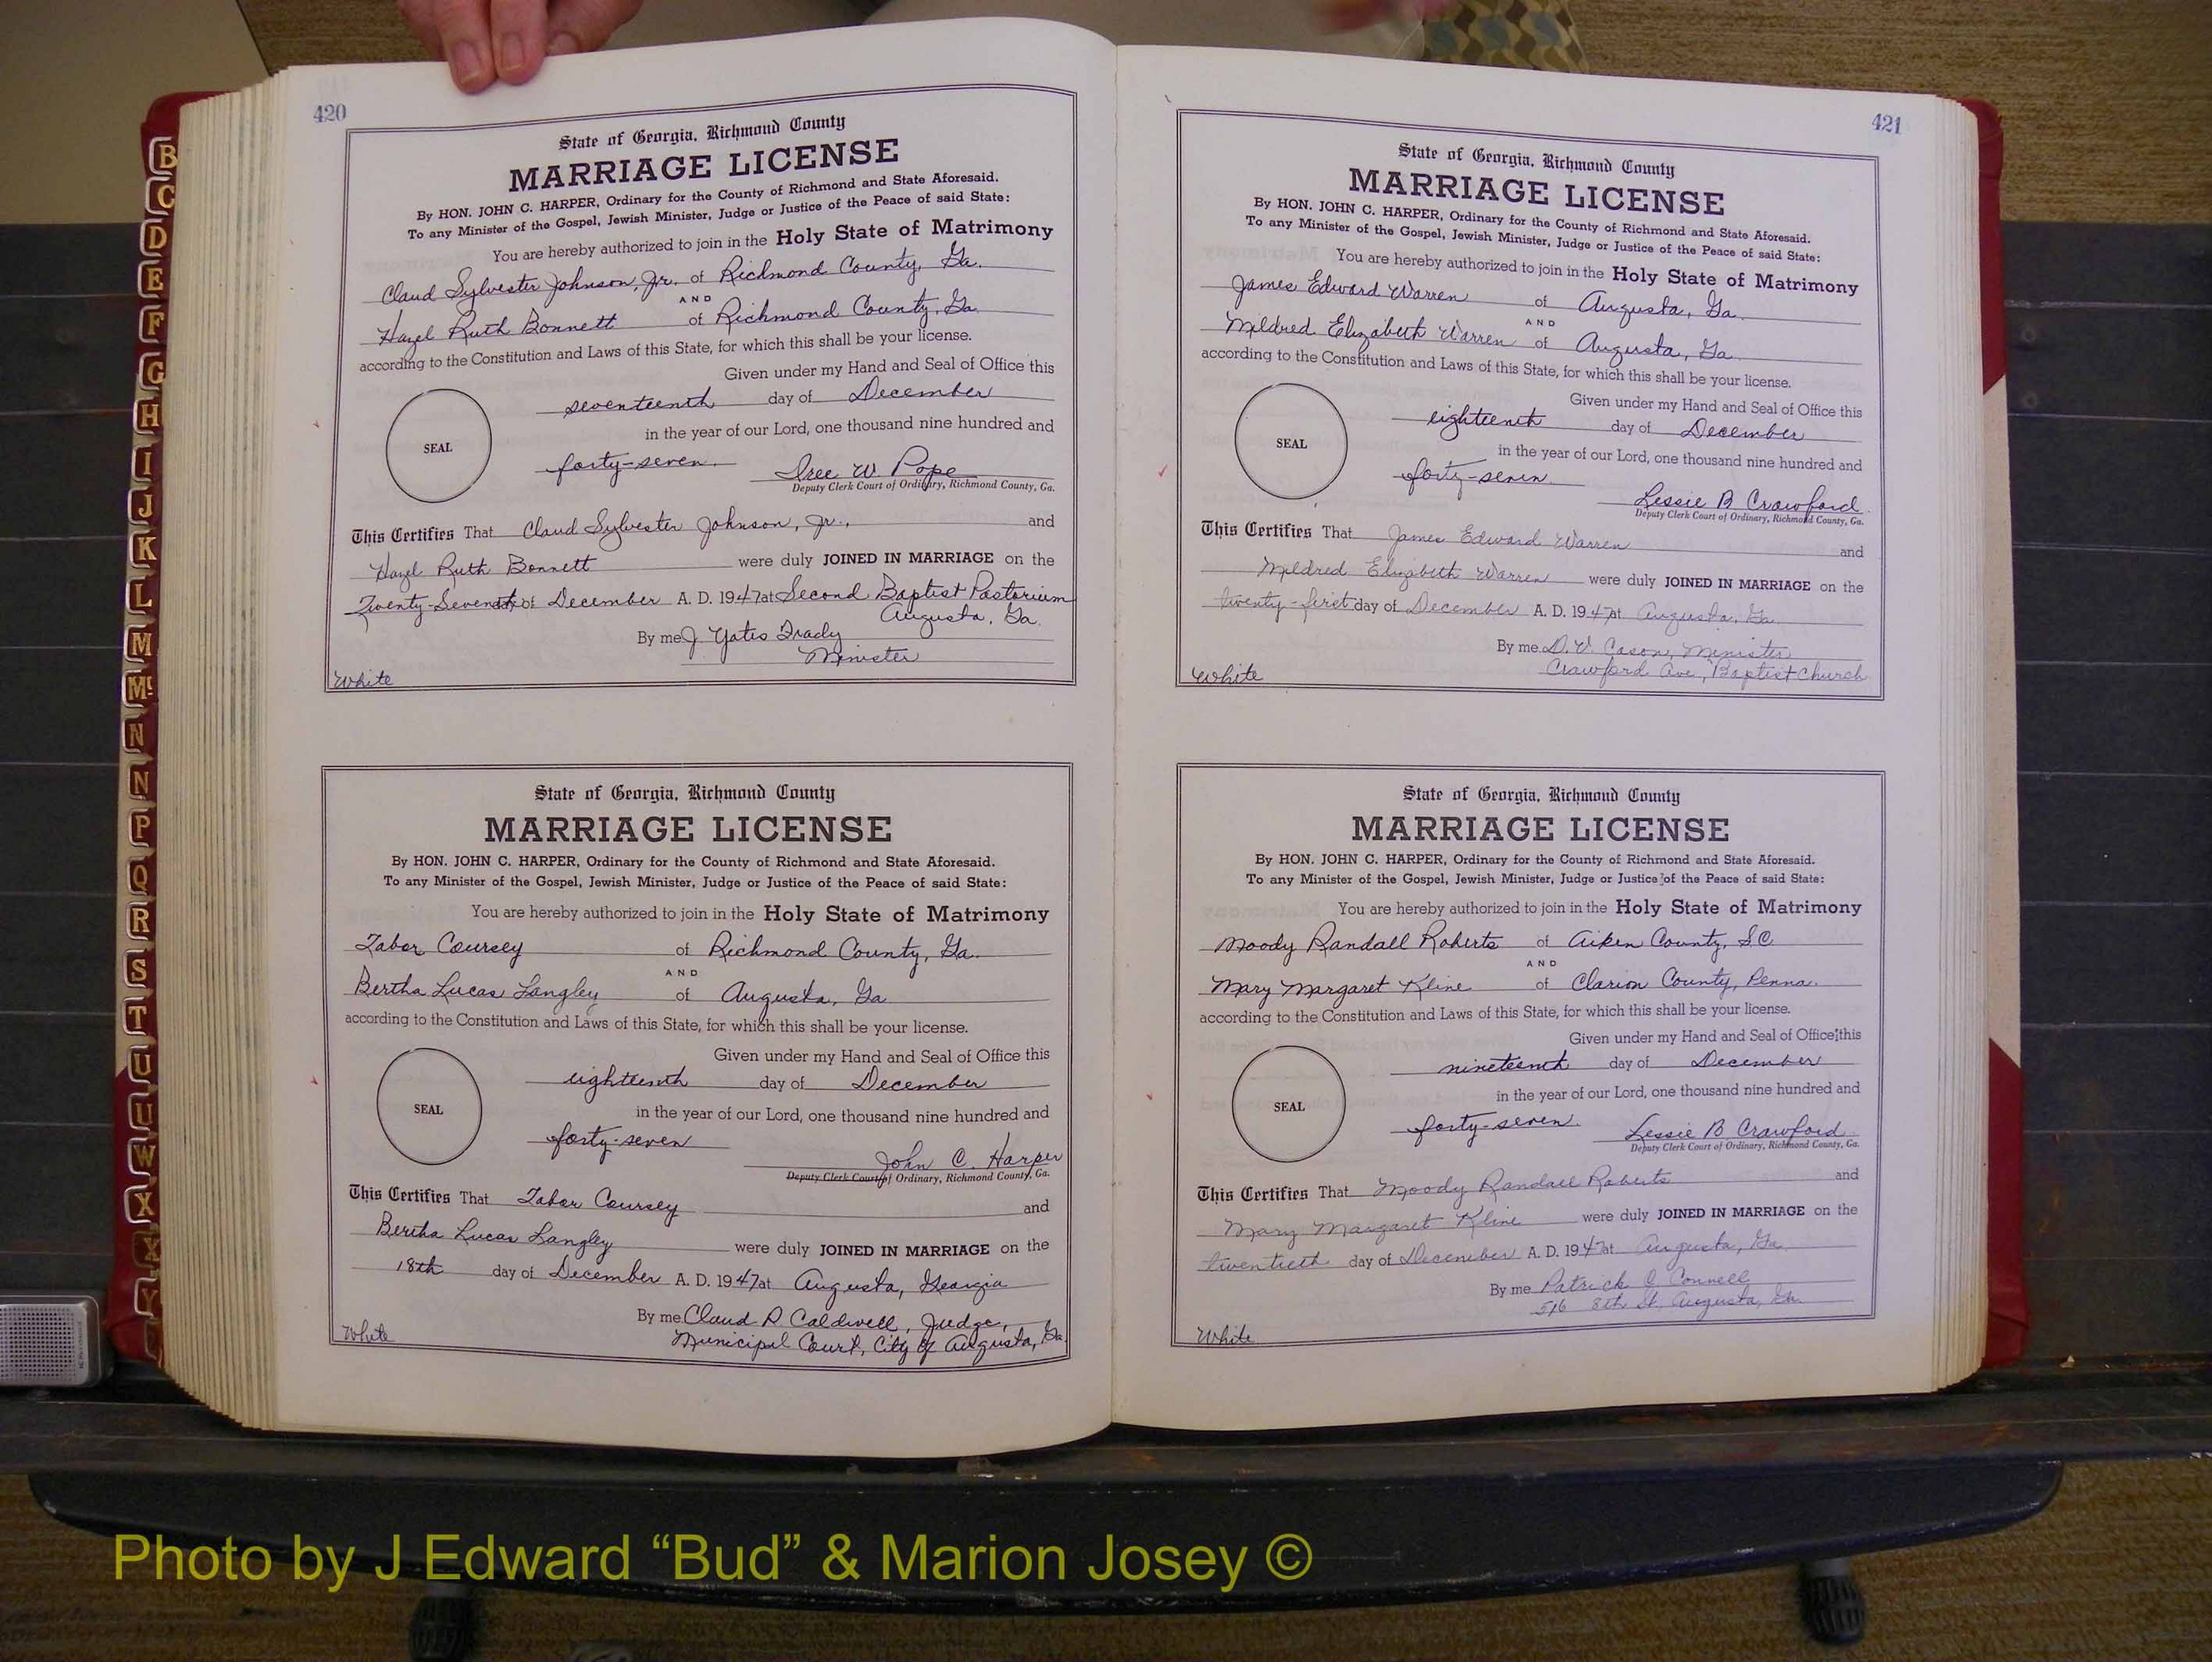 420
State of Georgia, Richmond County
MARRIAGE LICENSE
By HON. JOHN C. HARPER, Ordinary for the County of Richmond and State Aforesaid.
To any Minister of the Gospel, Jewish Minister, Judge or Justice of the Peace of said State:
You are hereby authorized to join in the Holy State of Matrimony
Claud Sylvester Johnson, Jr. of Richmond County, Ga.
AND
Hazel Ruth Bonnett of Richmond County, Ga.
according to the Constitution and Laws of this State, for which this shall be your license.
Given under my Hand and Seal of Office this
seventeenth day of December
SEAL
in the year of our Lord, one thousand nine hundred and
forty-seven. W Pope
Deputy Clerk Court of Ordinary, Richmond County, Ga.
This Certifies That Claud Sylvester Johnson, Jr., and
Hazel Ruth Bonnett were duly JOINED IN MARRIAGE on the
Twenty-Seventh of December A. D. 1947 at Second Baptist Pastorium
Augusta, Ga.
By me J. Yates
Minister
White
State of Georgia, Richmond County
MARRIAGE LICENSE
By HON. JOHN C. HARPER, Ordinary for the County of Richmond and State Aforesaid.
To any Minister of the Gospel, Jewish Minister, Judge or Justice of the Peace of said State:
You are hereby authorized to join in the Holy State of Matrimony
Tabor Coursey of Richmond County, Ga.
AND
Bertha Lucas Langley of Augusta, Ga
according to the Constitution and Laws of this State, for which this shall be your license.
Given under my Hand and Seal of Office this
eighteenth day of December
SEAL
in the year of our Lord, one thousand nine hundred and
forty-seven
John C. Harper
Deputy Clerk Court of Ordinary, Richmond County, Ga.
This Certifies That Tabor Coursey and
Bertha Lucas Langley were duly JOINED IN MARRIAGE on the
18th day of December A. D. 1947 at Augusta, Georgia
By me Claud R Caldwell, Judge,
Municipal Court, City of Augusta, Ga
White
421
State of Georgia, Richmond County
MARRIAGE LICENSE
By HON. JOHN C. HARPER, Ordinary for the County of Richmond and State Aforesaid.
To any Minister of the Gospel, Jewish Minister, Judge or Justice of the Peace of said State:
You are hereby authorized to join in the Holy State of Matrimony
James Edward Warren of Augusta, Ga.
AND
Mildred Elizabeth Warren of Augusta, Ga.
according to the Constitution and Laws of this State, for which this shall be your license.
Given under my Hand and Seal of Office this
eighteenth day of December
SEAL
in the year of our Lord, one thousand nine hundred and
forty-seven.
Lessie B Crawford
Deputy Clerk Court of Ordinary, Richmond County, Ga.
This Certifies That James Edward Warren and
Mildred Elizabeth Warren were duly JOINED IN MARRIAGE on the
twenty-first day of December A. D. 1947 at Augusta, Ga.
By me D. V. Cason, Minister
Crawford Ave, Baptist Church
White
State of Georgia, Richmond County
MARRIAGE LICENSE
By HON. JOHN C. HARPER, Ordinary for the County of Richmond and State Aforesaid.
To any Minister of the Gospel, Jewish Minister, Judge or Justice of the Peace of said State:
You are hereby authorized to join in the Holy State of Matrimony
Moody Randall Roberts of Aiken County, S.C.
AND
Mary Margaret Kline of Clarion County, Penna.
according to the Constitution and Laws of this State, for which this shall be your license.
Given under my Hand and Seal of Office this
nineteenth day of December
SEAL
in the year of our Lord, one thousand nine hundred and
forty-seven.
Lessie B Crawford
Deputy Clerk Court of Ordinary, Richmond County, Ga.
This Certifies That Moody Randall Roberts and
Mary Margaret Kline were duly JOINED IN MARRIAGE on the
twentieth day of December A. D. 1947 at Augusta, Ga
By me Patrick C Connell
516 8th St, Augusta, Ga.
White
B
C
D
E
F
G
H
I
J
K
L
M
Mc
N
N
P
Q
R
S
T
U
U
W
X
X
Y
Photo by J Edward “Bud” & Marion Josey ©